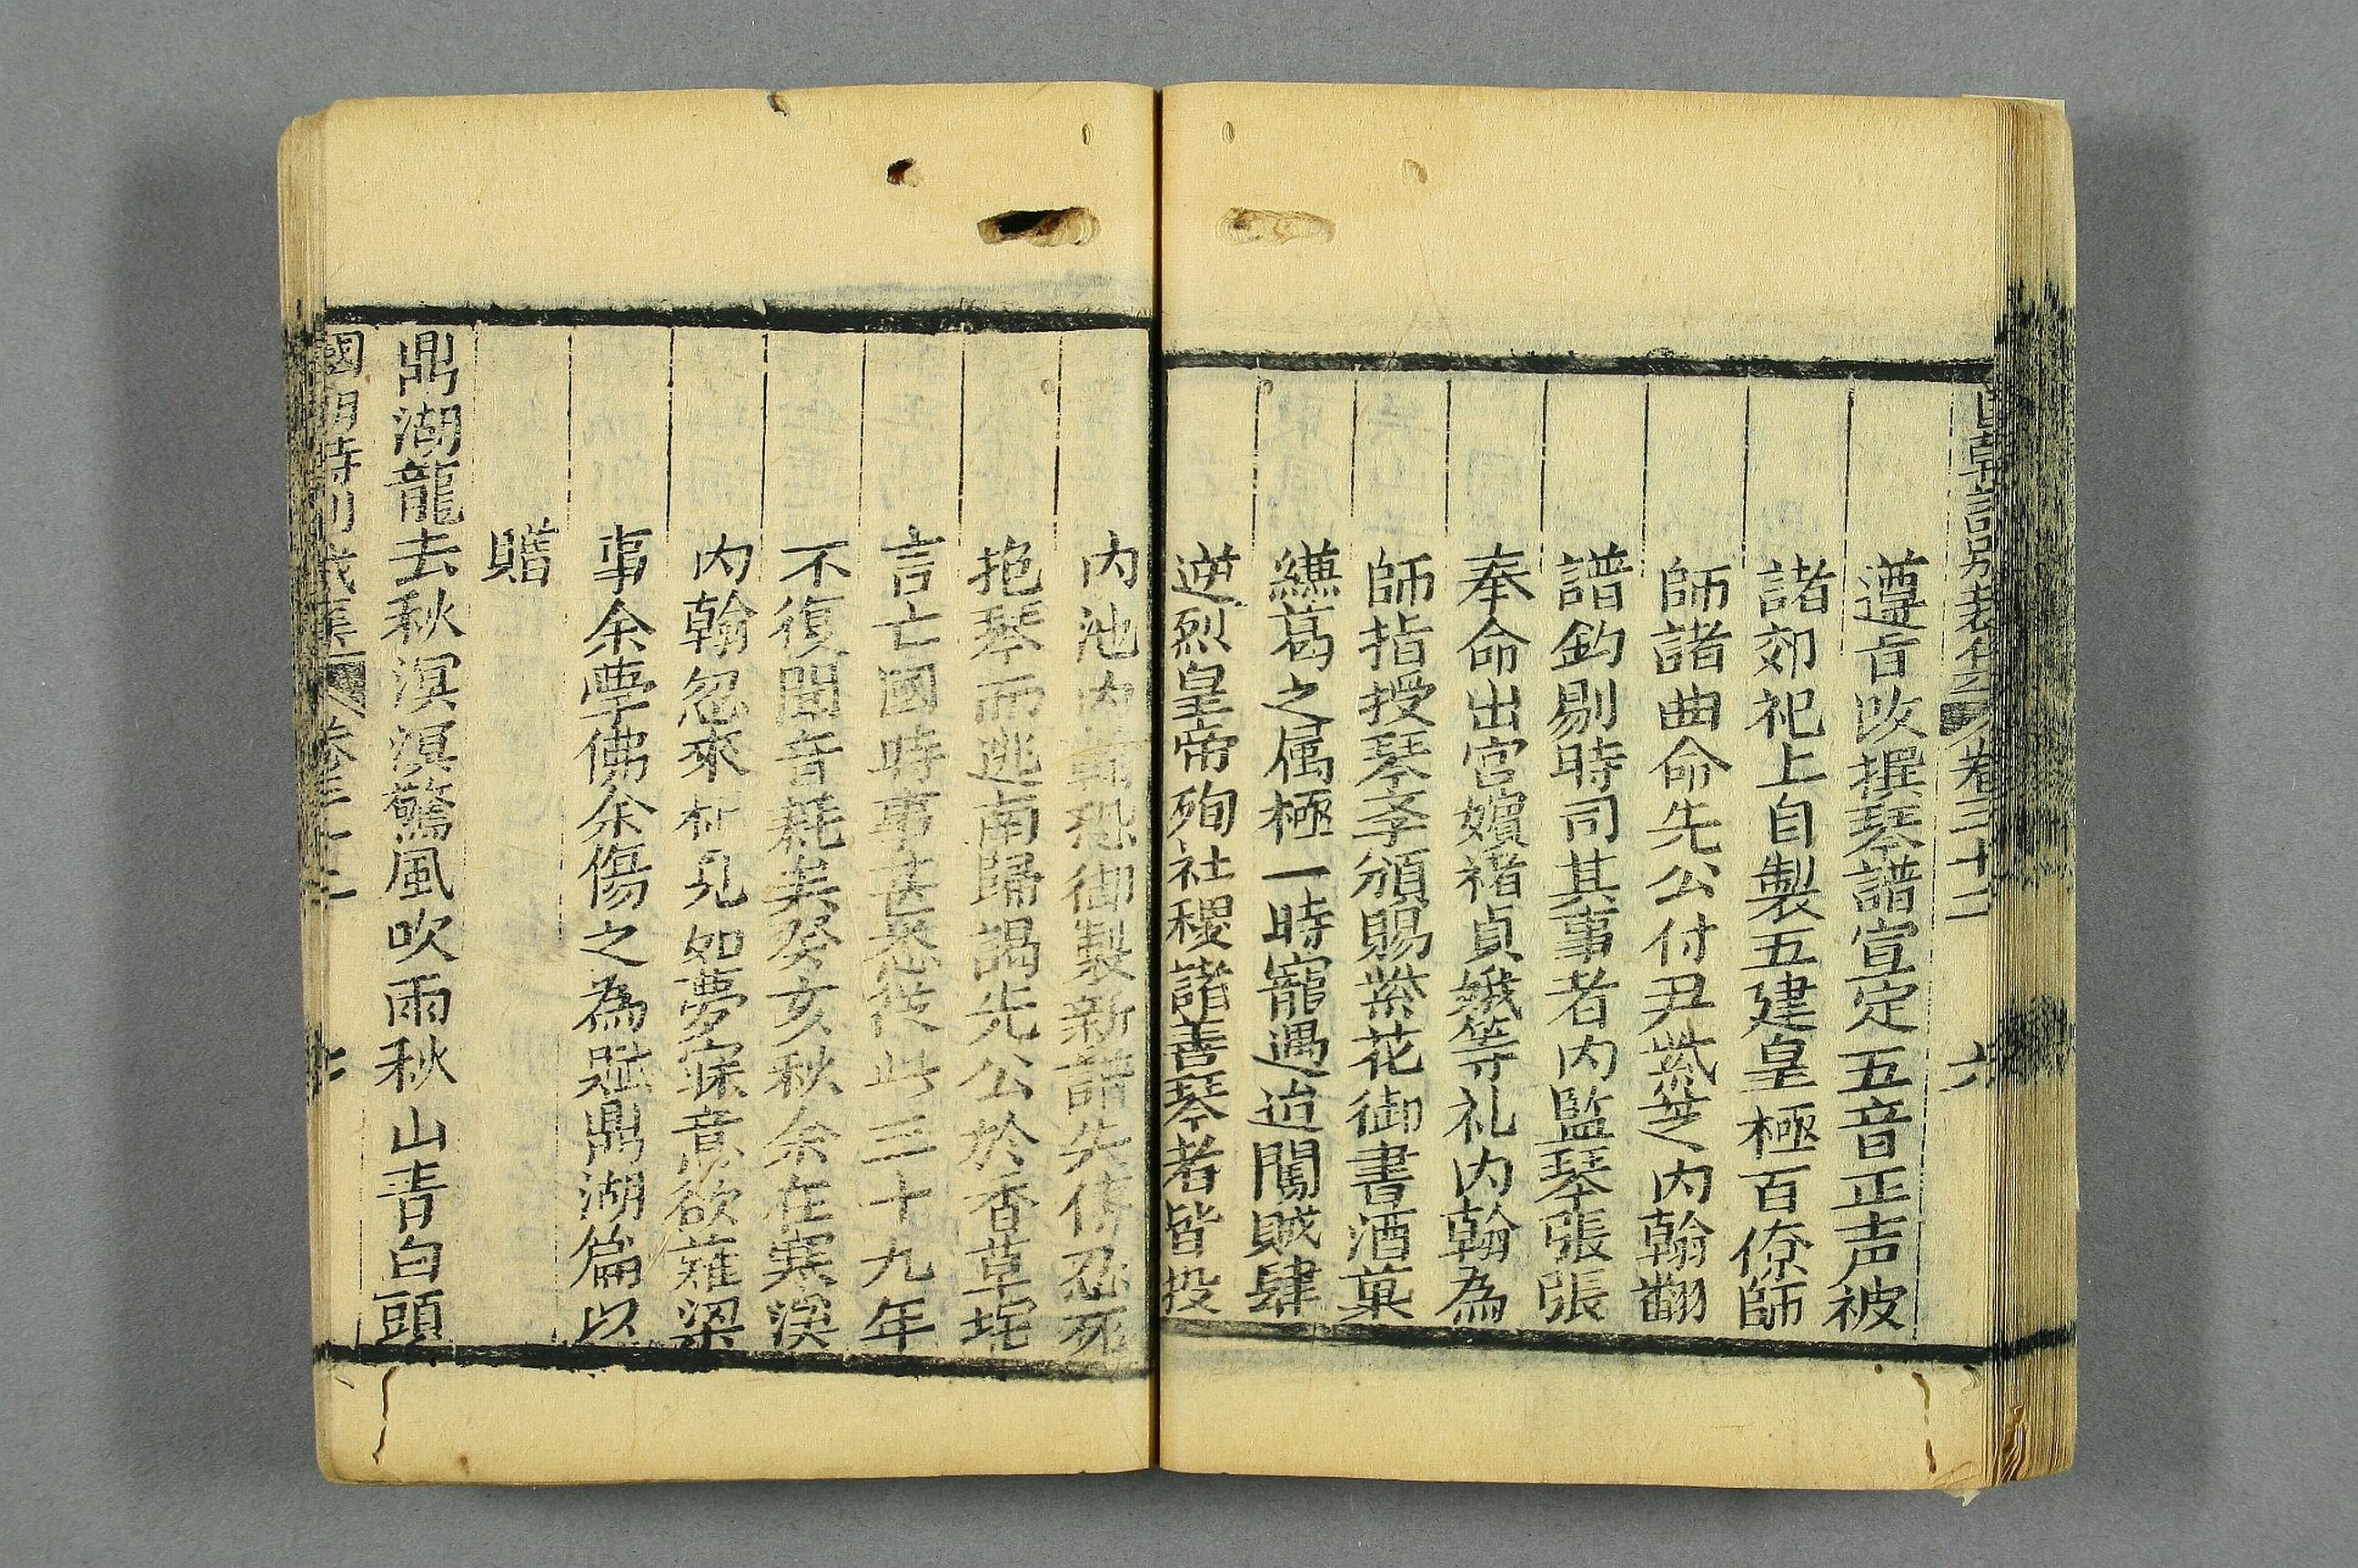 遵旨改撰琴譜宣定五音正声被
諸郊祀上自製五建皇極百僚師
師諸曲命先公付尹紫芝内翰翻
譜鈎剔時司其事者内監琴張張
奉命出宮嬪褚貞娥等礼内翰為
師指授琴李頒賜紫花御書酒菓
縑葛之属極一時寵遇迨闖賊肆
逆烈皇帝殉社稷諸善琴者皆投
内池内翰恐御製新譜失傳忍死
抱琴而逃南歸謁先公於香草垞
言亡國時事甚悉從此三十九年
不復聞音耗矣癸亥秋余在寒溪
内翰忽來相見如夢寐意欲薙染
事余學佛余傷之為賦鼎湖篇以
贈
鼎湖龍去秋溟溟驚風吹雨秋山青白頭
卷三十二 六
國朝詩別裁集